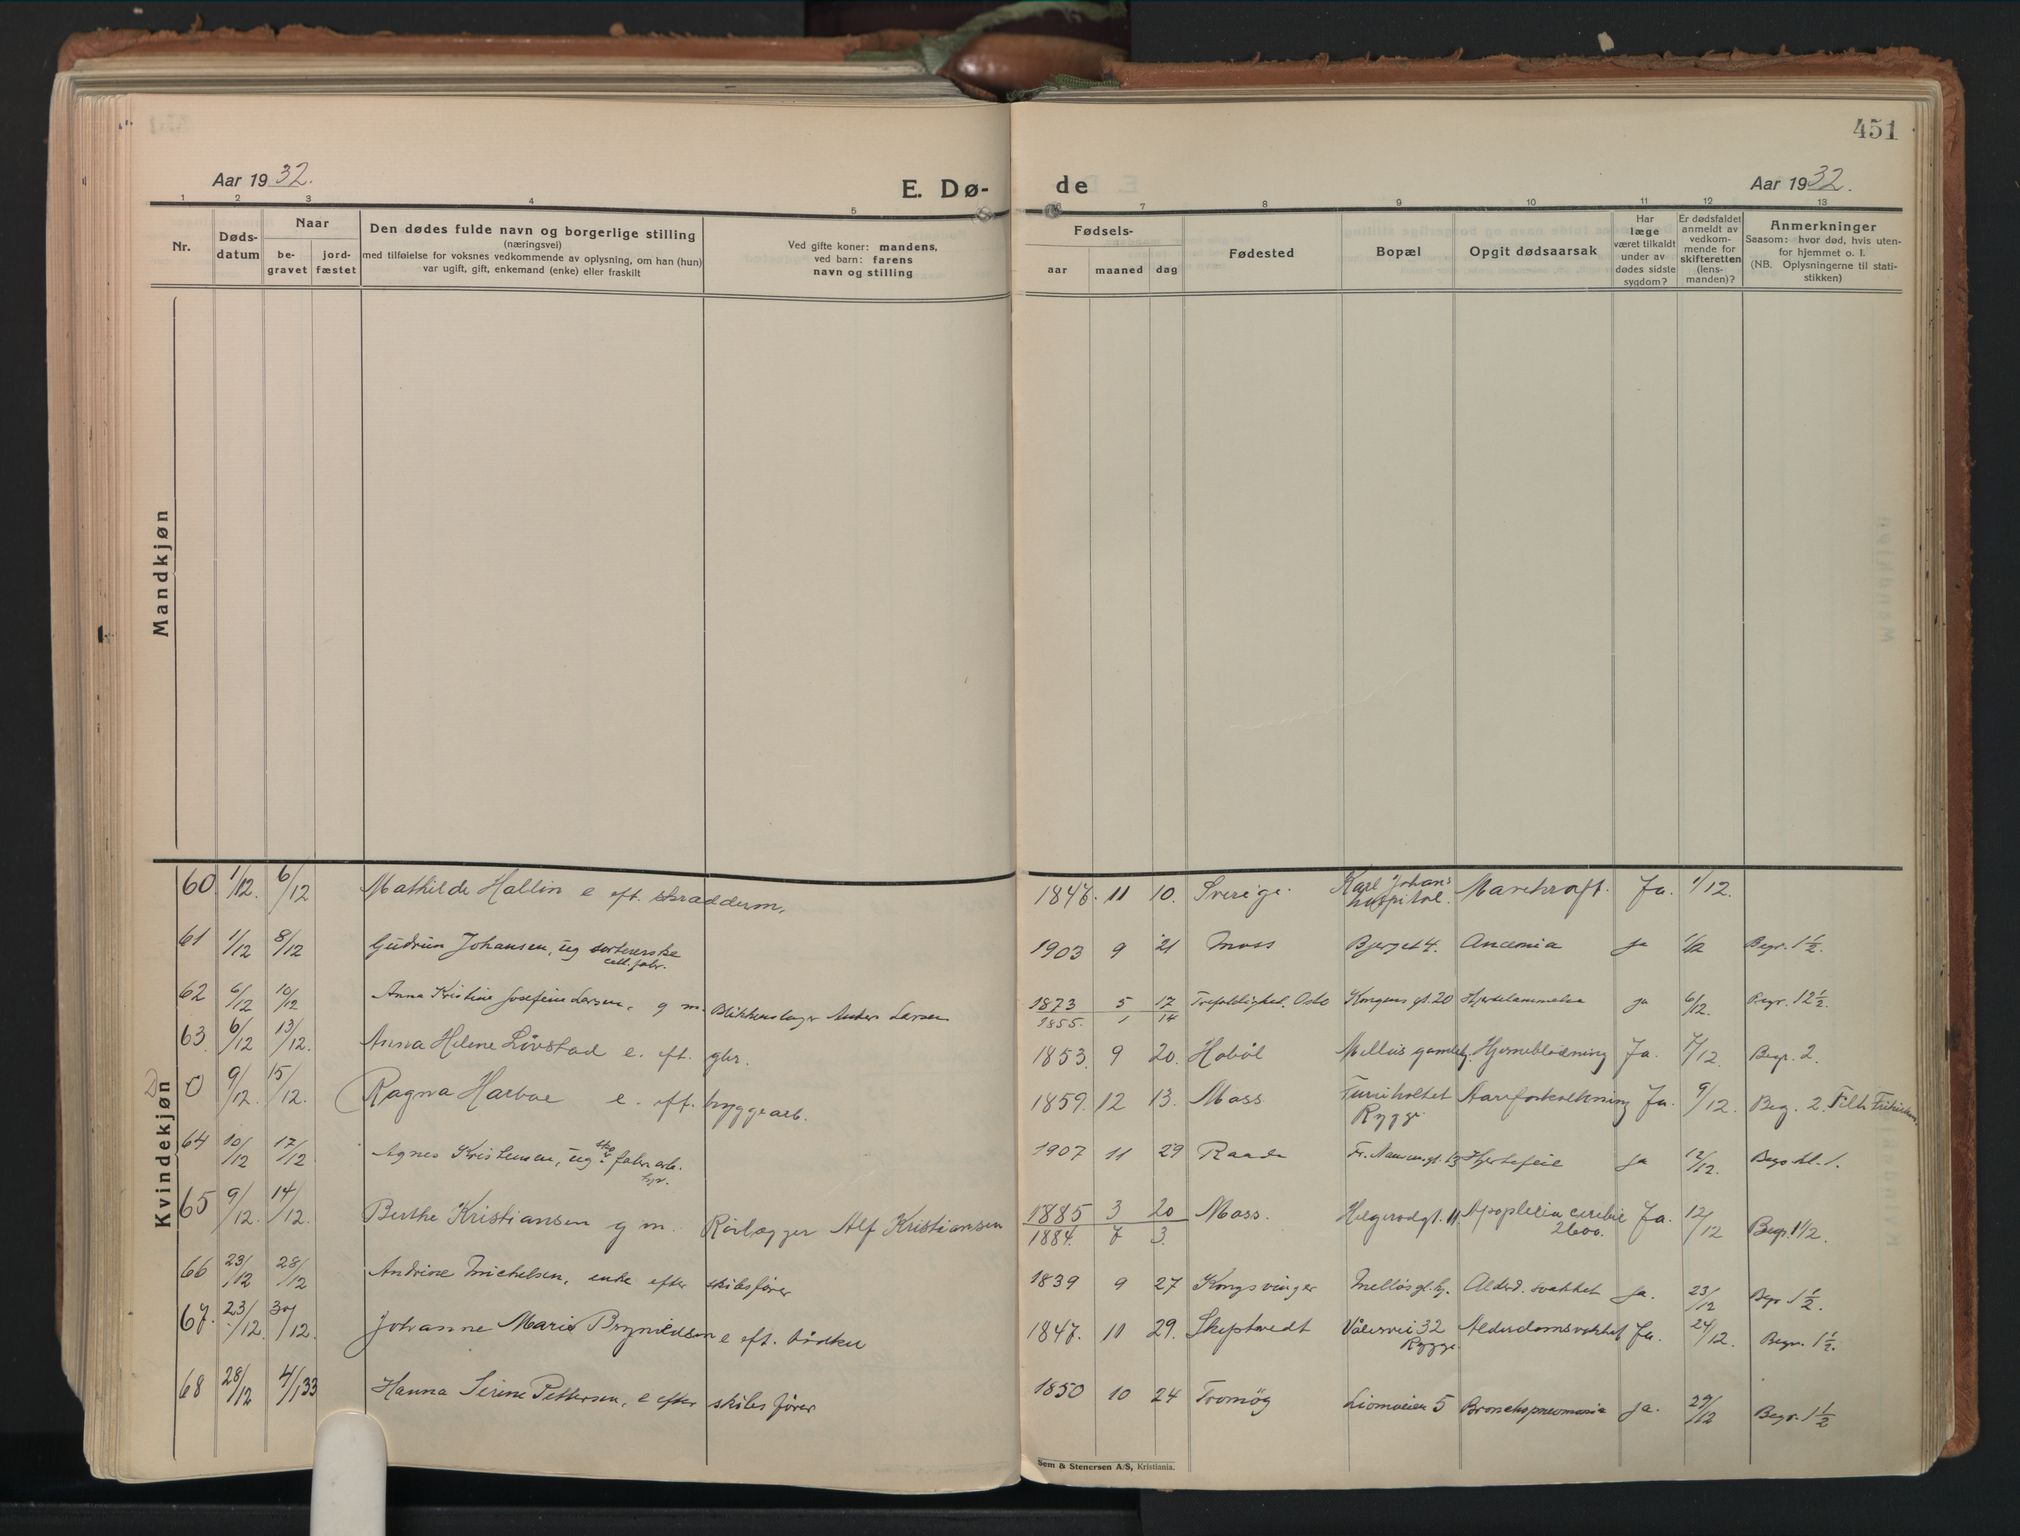 451
Aar 1932.
E. Dø-
de
Aar 1932.
1 2 3 4 5 6 7 8 9 10 11 12 13
Nr.
Døds-
datum
Naar
be-
gravet
jord-
fæstet
Den dødes fulde navn og borgerlige stilling
(næringsvei)
med tilføielse for voksnes vedkommende av oplysning, om han (hun)
var ugift, gift, enkemand (enke) eller fraskilt
Ved gifte koner: mandens,
ved barn: farens
navn og stilling
Fødsels-
aar maaned dag
Fødested
Bopæl
Opgit dødsaarsak
Har
læge
været tilkaldt
under av
dødes sidste
sygdom?
Er dødsfaldet
anmeldt av
vedkom-
mende for
skifteretten
(lens-
manden)?
Anmerkninger
Saasom: hvor død, hvis uten-
for hjemmet o. l.
(NB. Oplysningerne til stati-
stikken)
Mandkjøn
Kvindekjøn
60 1/12. 6/12 Mathilde Hallin e. eft. skrædderm. 1846. 11 10. Sverige. Karl Johans hospital. Marekraft. Ja. 1/12.
61 1/12 8/12 Gudrun Johansen, ug sortererske cell. fabr. 1903 9 21 Moss Bjerget 4. Anæmia ja 1/12 Begr. 1 1/2.
62 6/12 10/12 Anna Kristine Josefine Larsen, g m. Blikkenslager Anders Larsen 1873 5 17 Trefoldighet. Oslo Kongens gt. 20 ja 6/12. Begr. 12 1/2.
1855. 1 14
63. 6/12 13/12. Anna Helene Løvstad e. eft. gbr. 1853 9 20. Hobøl Melløs gamleh. Hjerneblødning Ja. 7/12. Begr. 2.
0 9/12. 15/12. Ragna Harboe e. eft. byggearb. 1859. 12 13. Moss Furuholtet Rygge Aareforkalkning Ja. 9/12. Beg. 2.
64 10/12 17/12. Agnes Kristensen, ug sko fabr. arb. 1907 11 29 Raade Fr. Nansensgt. 13 Hjertefeil ja 12/12. Begr. kl. 1.
65 9/12. 14/12. Berthe Kristiansen g m. Rørlægger Alf Kristiansen 1885 3 20 Moss. Helgerødgt. 11 Apoplexia cerebri Ja. 12/12 Begr. 1 1/2.
1884. 7 3.
66 23/12 28/12 Andrine Michelsen, enke efter skibsfører 1839 9 27 Kongsvinger Melløs gl. hj. Alderd. svakhet Ja. 23/12 Begr 1 1/2.
67. 23/12. 30/12. Johanne Marie Brynildsen e eft. bødker 1847. 11 29. Skiptvedt Vålervei 32 Rygge. Alderdomsvakhet Ja. 24/12. Begr. 1 1/2.
68 28/12 4/1 33 Hanna Serine Pettersen, e efter skibsfører 1850 10 24 Tromøy 5 Bronchopneumonia ja. 29/12 Begr. 1 1/2
Sem & Stenersen A/S, Kristiania.